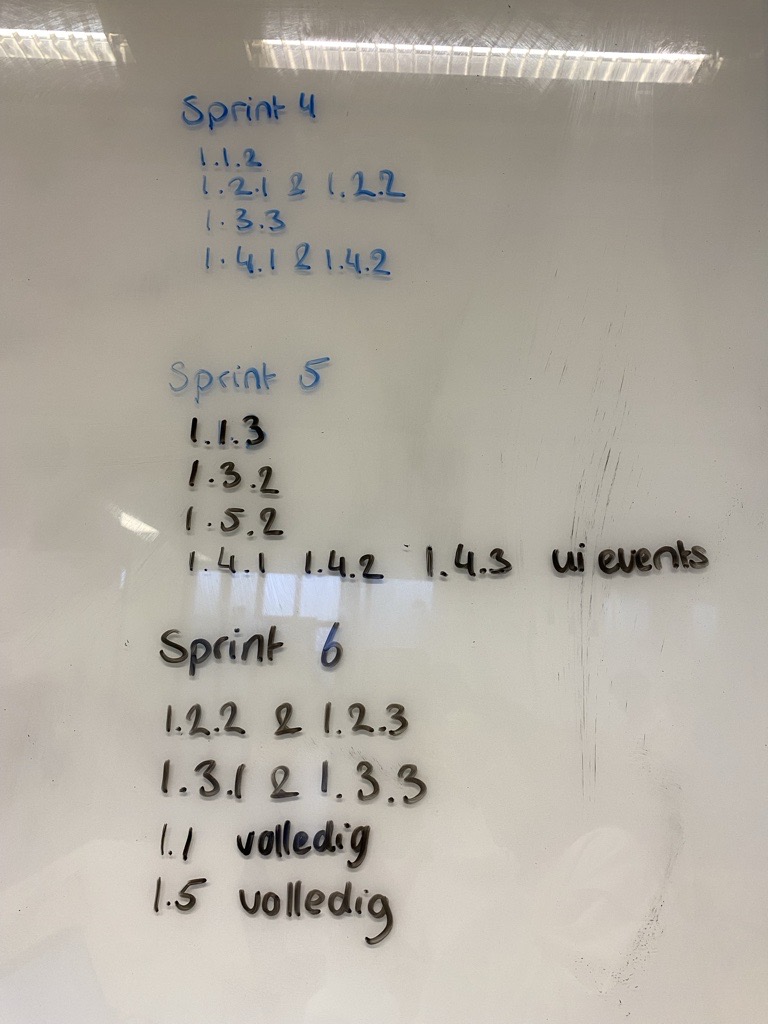 Sprint 4
1.1.2
1.2.1 & 1.2.2
1.3.3
1.4.1 & 1.4.2
Sprint 5
1.1.3
1.3.2
1.5.2
1.4.1 1.4.2 1.4.3 ui events
Sprint 6
1.2.2 & 1.2.3
1.3.1 & 1.3.3
1.1 volledig
1.5 volledig